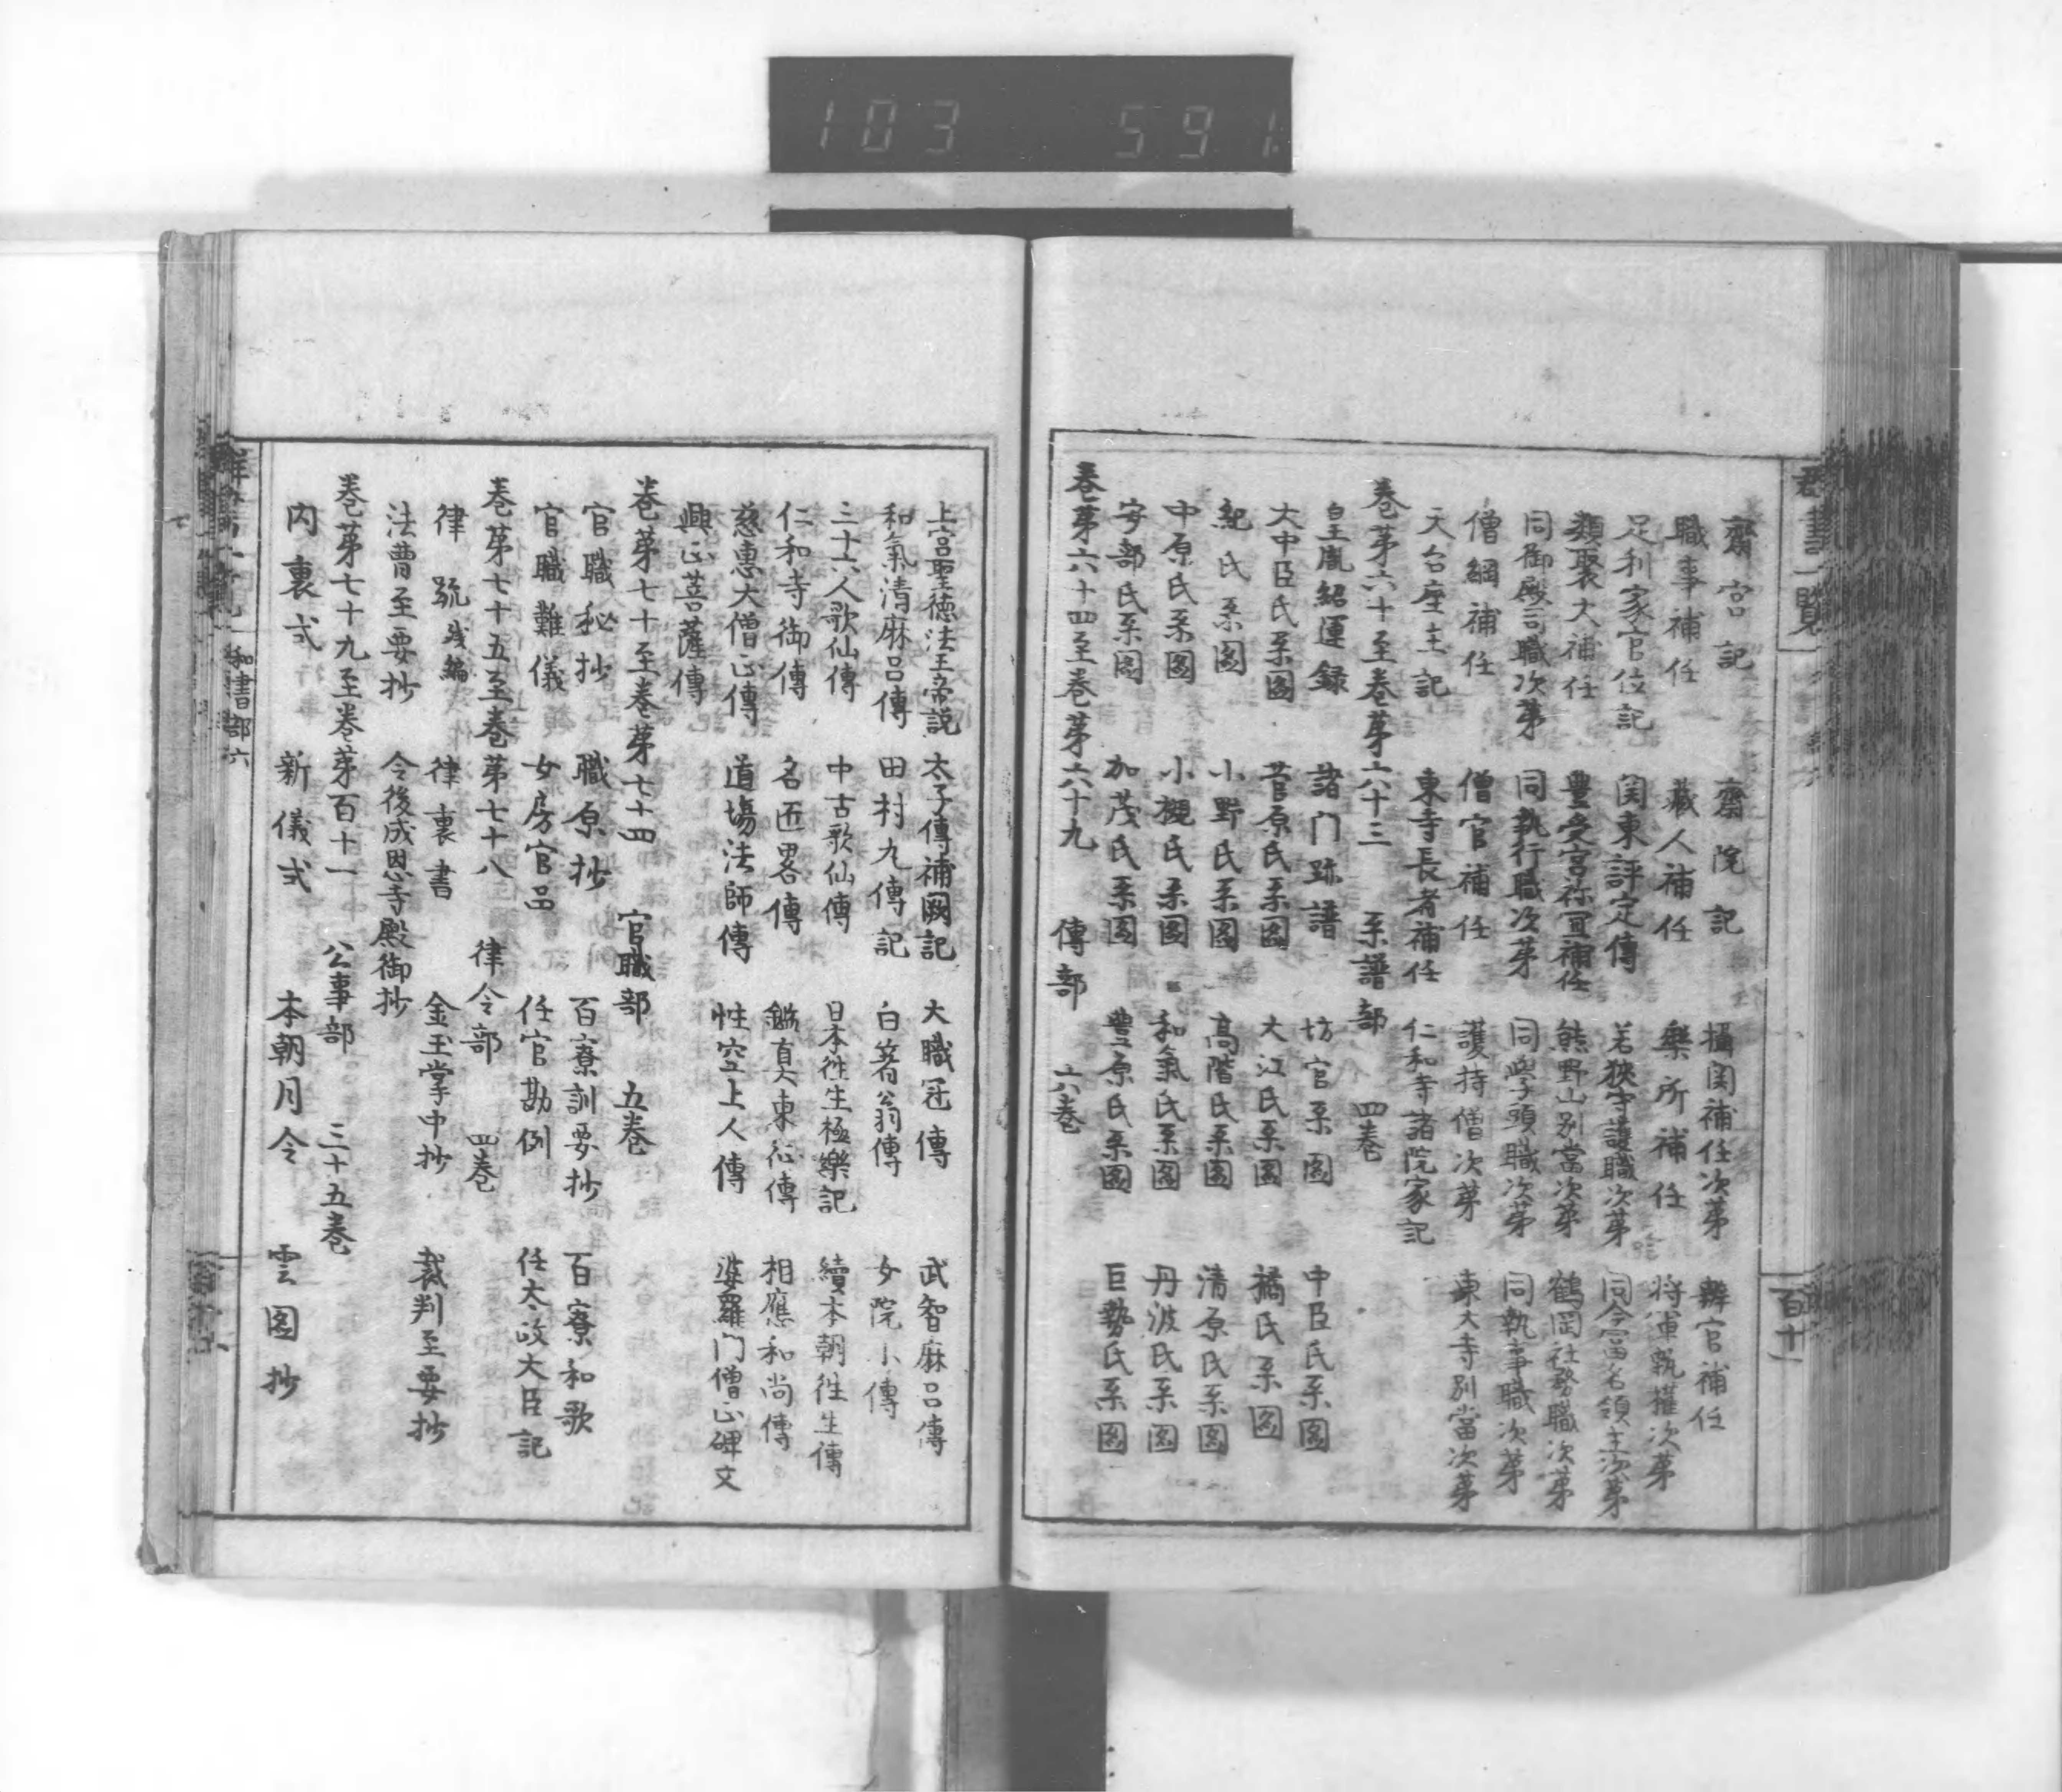 103 591
群書一覧
百十一
齋宮記 齋院記 攝関補任次第 辨官補任
職事補任 藏人補任 樂所補任 将軍執權次第
足利家官位記 関東評定傳 若狹守護職次第 同今富名領主次第
類聚大補任 豊受宮祢宜補任 熊野山別當次第 鶴岡社務職次第
同御殿司職次第 同執行職次第 同學頭職次第 同執事職次第
僧綱補任 僧官補任 護持僧次第 東大寺別當次第
天台座主記 東寺長者補任 仁和寺諸院家記
巻第六十至巻第六十三 系譜部 四巻
皇胤紹運録 諸门跡譜 坊官系圖 中臣氏系圖
大中臣氏系圖 菅原氏系圖 大江氏系圖 橘氏系圖
紀氏系圖 小野氏系圖 髙階氏系圖 清原氏系圖
中原氏系圖 小槻氏系圖 和氣氏系圖 丹波氏系圖
安部氏系圖 加茂氏系圖 豊原氏系圖 巨勢氏系圖
巻第六十四至巻第六十九 傳部 六巻
上宮聖徳法王帝説 太子傳補闕記 大職冠傳 武智麻呂傳
和氣清麻呂傳 田村九傳記 白箸翁傳 女院小傳
三十六人歌仙傳 中古歌仙傳 日本徃生極樂記 續本朝徃生傳
仁和寺御傳 名匠畧傳 鑑真東征傳 相應和尚傳
慈惠大僧正傳 道場法師傳 性空上人傳 婆羅门僧正碑文
興正菩薩傳
巻第七十至巻第七十四 官職部 五巻
官職秘抄 職原抄 百寮訓要抄 百寮和歌
官職難儀 女房官品 任官勘例 任太政大臣記
巻第七十五至巻第七十八 律令部 四巻
律䟽残編 律裏書 金玉掌中抄 裁判至要抄
法曹至要抄 令後成恩寺殿御抄
巻第七十九至巻第百十一 公事部 三十五巻
内裏式 新儀式 本朝月令 雲圖抄
和書部六